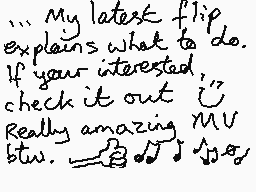 ... My latest flip
explains what to do.
If your interested,
check it out
Really amazing MV
btw.